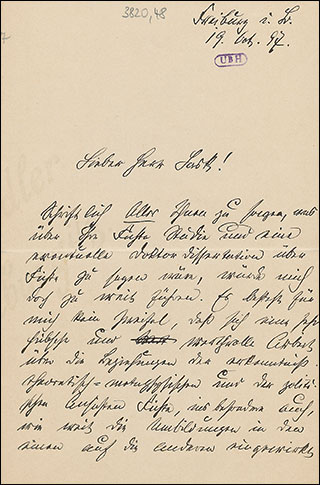 3820,48
Freiburg i. B.
19. Oct. 97.
UBH
Lieber Herr Lask!
Schriftlich Alles Ihnen zu sagen, was
über Ihre Fichte Studie und eine
eventuelle Doktordissertation über
Fichte zu sagen wäre, würde mich
doch zu weit führen. Es besteht für
mich kein Zweifel, daß sich eine sehr
hübsche und werthvolle Arbeit
über die Beziehungen der erkenntniß-
theoretisch-metaphysischen und der politi-
schen Ansichten Fichtes, insbesondere auch,
wie weit die Umbildungen in den
einen auf die anderen eingewirkt